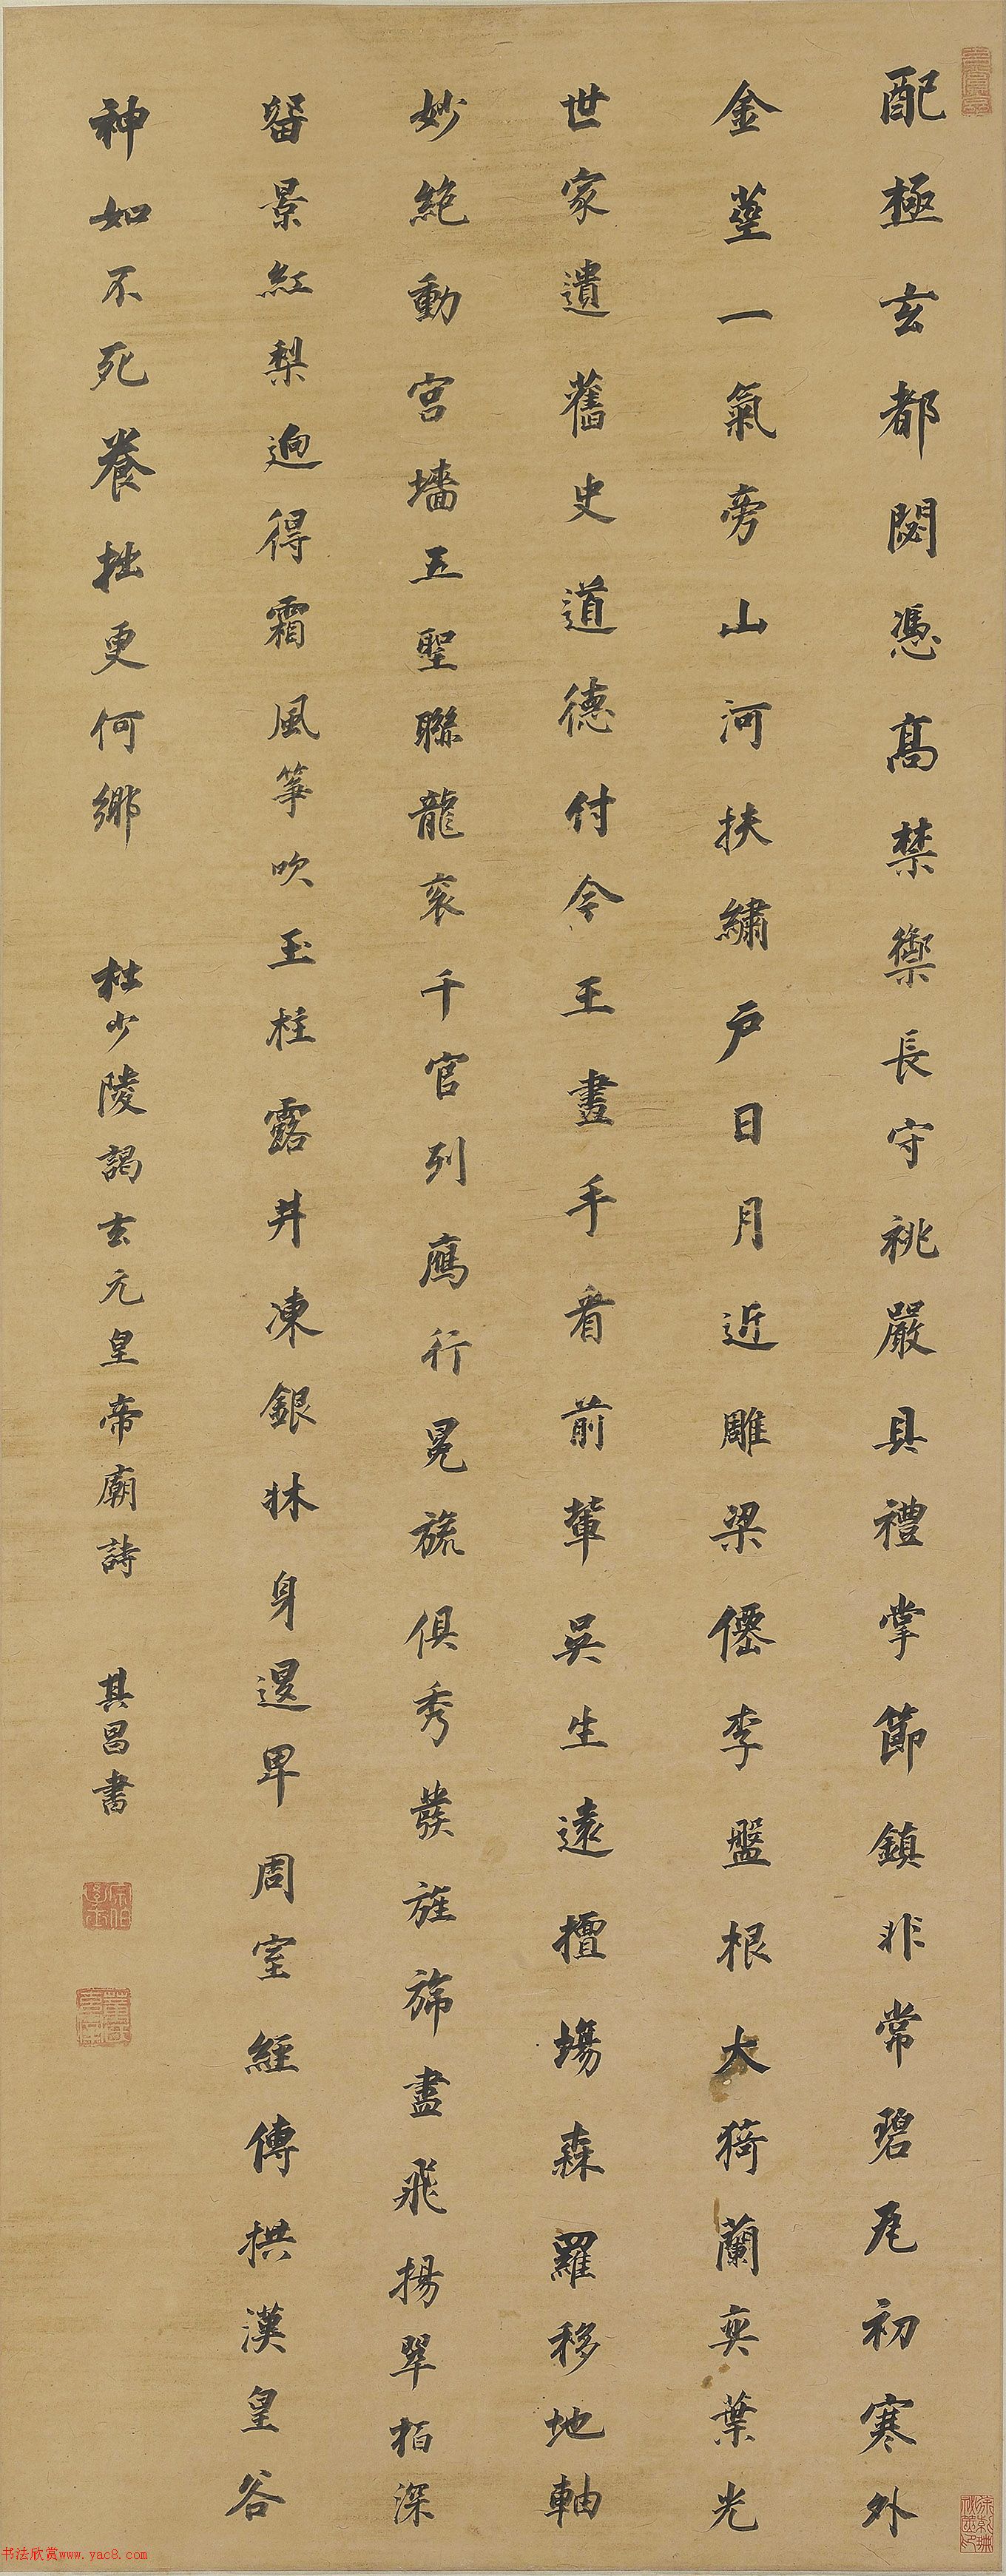 配極玄都閟憑高禁禦長守祧嚴具禮掌節鎮非常碧瓦初寒外
金莖一氣旁山河扶繡戶日月近雕梁僊李盤根大猗蘭奕葉光
世家遺舊史道德付今王畫手看前輩吳生遠擅場森羅移地軸
妙絕動宮墻五聖聯龍衮千官列鴈行冕旒俱秀發旌旆盡飛揚翠栢深
留景紅梨迥得霜風箏吹玉柱露井凍銀牀身退卑周室經傳拱漢皇谷
神如不死養拙更何鄉 杜少陵謁玄元皇帝廟詩 其昌書
书法欣赏www.yac8.com